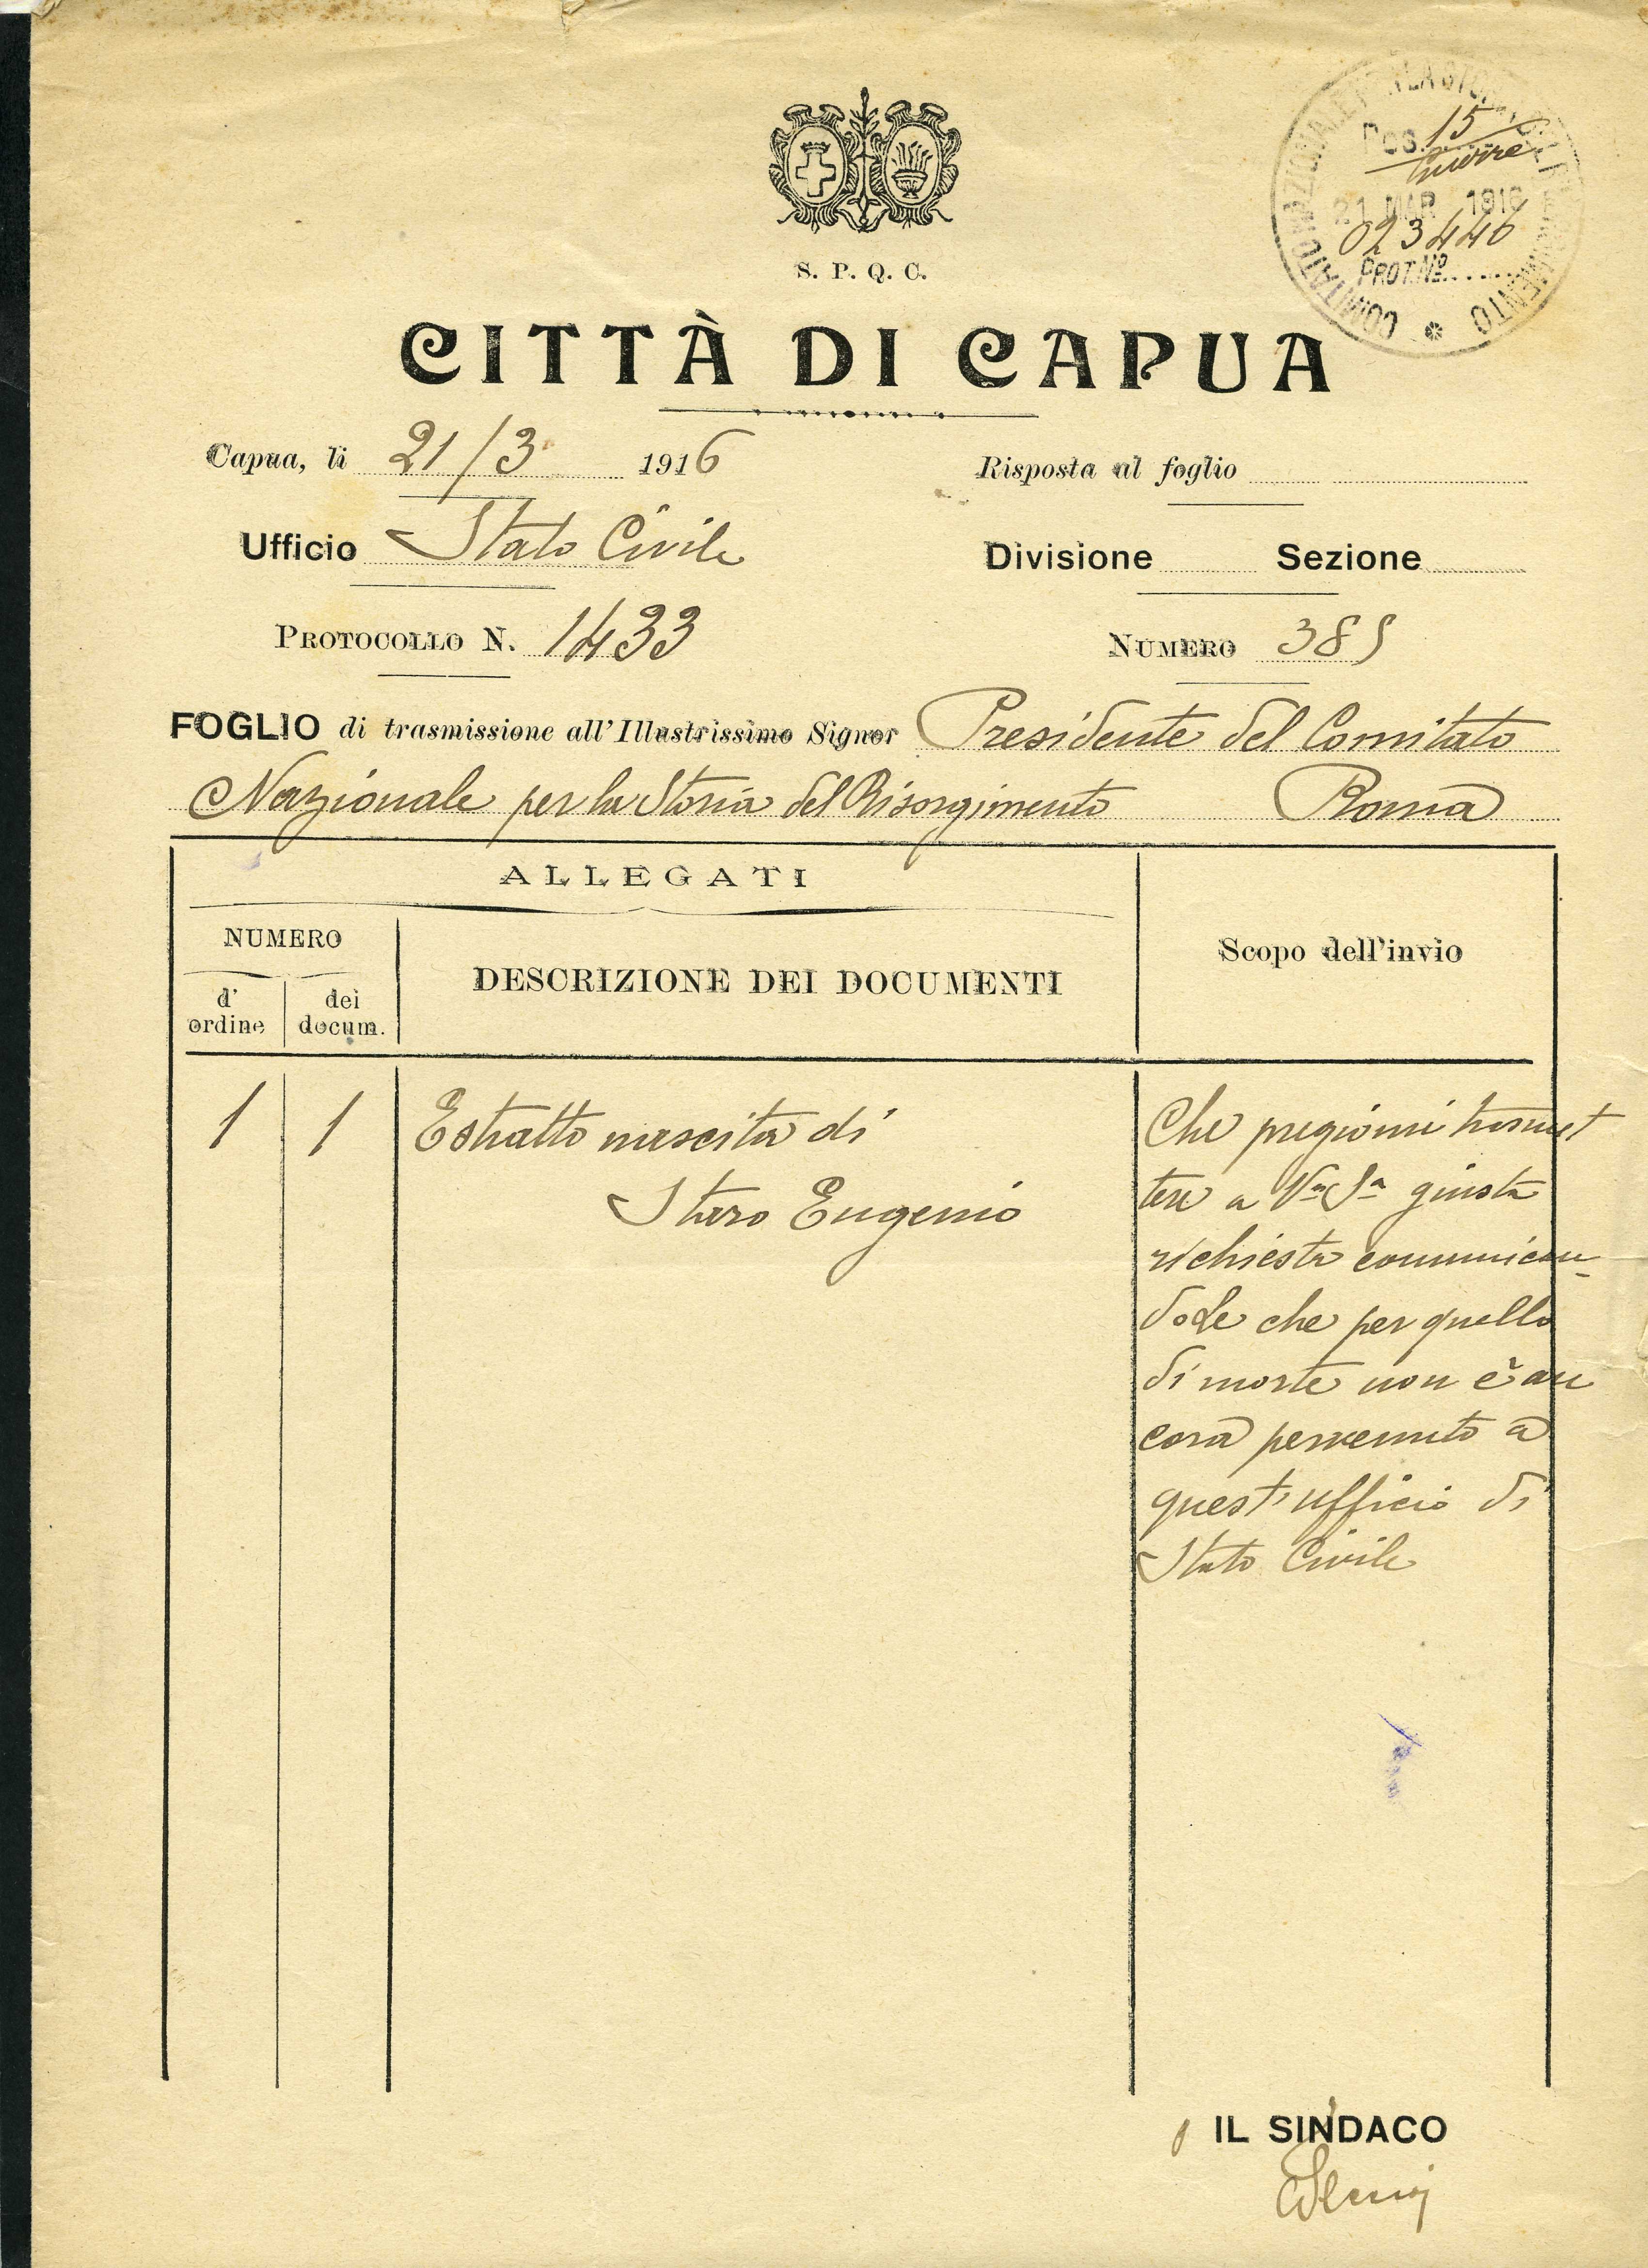 COMITATO NAZIONALE PER LA STORIA DEL RISORGIMENTO
Pos. 15
Guerre
21 MAR 1916
023446
PROT. Nº
S. P. Q. C.
CITTÀ DI CAPUA
Capua, li 21/3 1916
Risposta al foglio
Ufficio Stato Civile
Divisione Sezione
PROTOCOLLO N. 1433
NUMERO 385
FOGLIO di trasmissione all'Illustrissimo Signor Presidente del Comitato
Nazionale per la Storia del Risorgimento Roma
ALLEGATI
NUMERO
d' ordine
dei docum.
DESCRIZIONE DEI DOCUMENTI
Scopo dell'invio
1 1 Estratto nascita di
Staro Eugenio
Che pregiomi trasmet
tere a Va Sa giusta
richiesta comunican-
dole che per quello
di morte non è an
cora pervenuto a
quest'ufficio di
Stato Civile
IL SINDACO